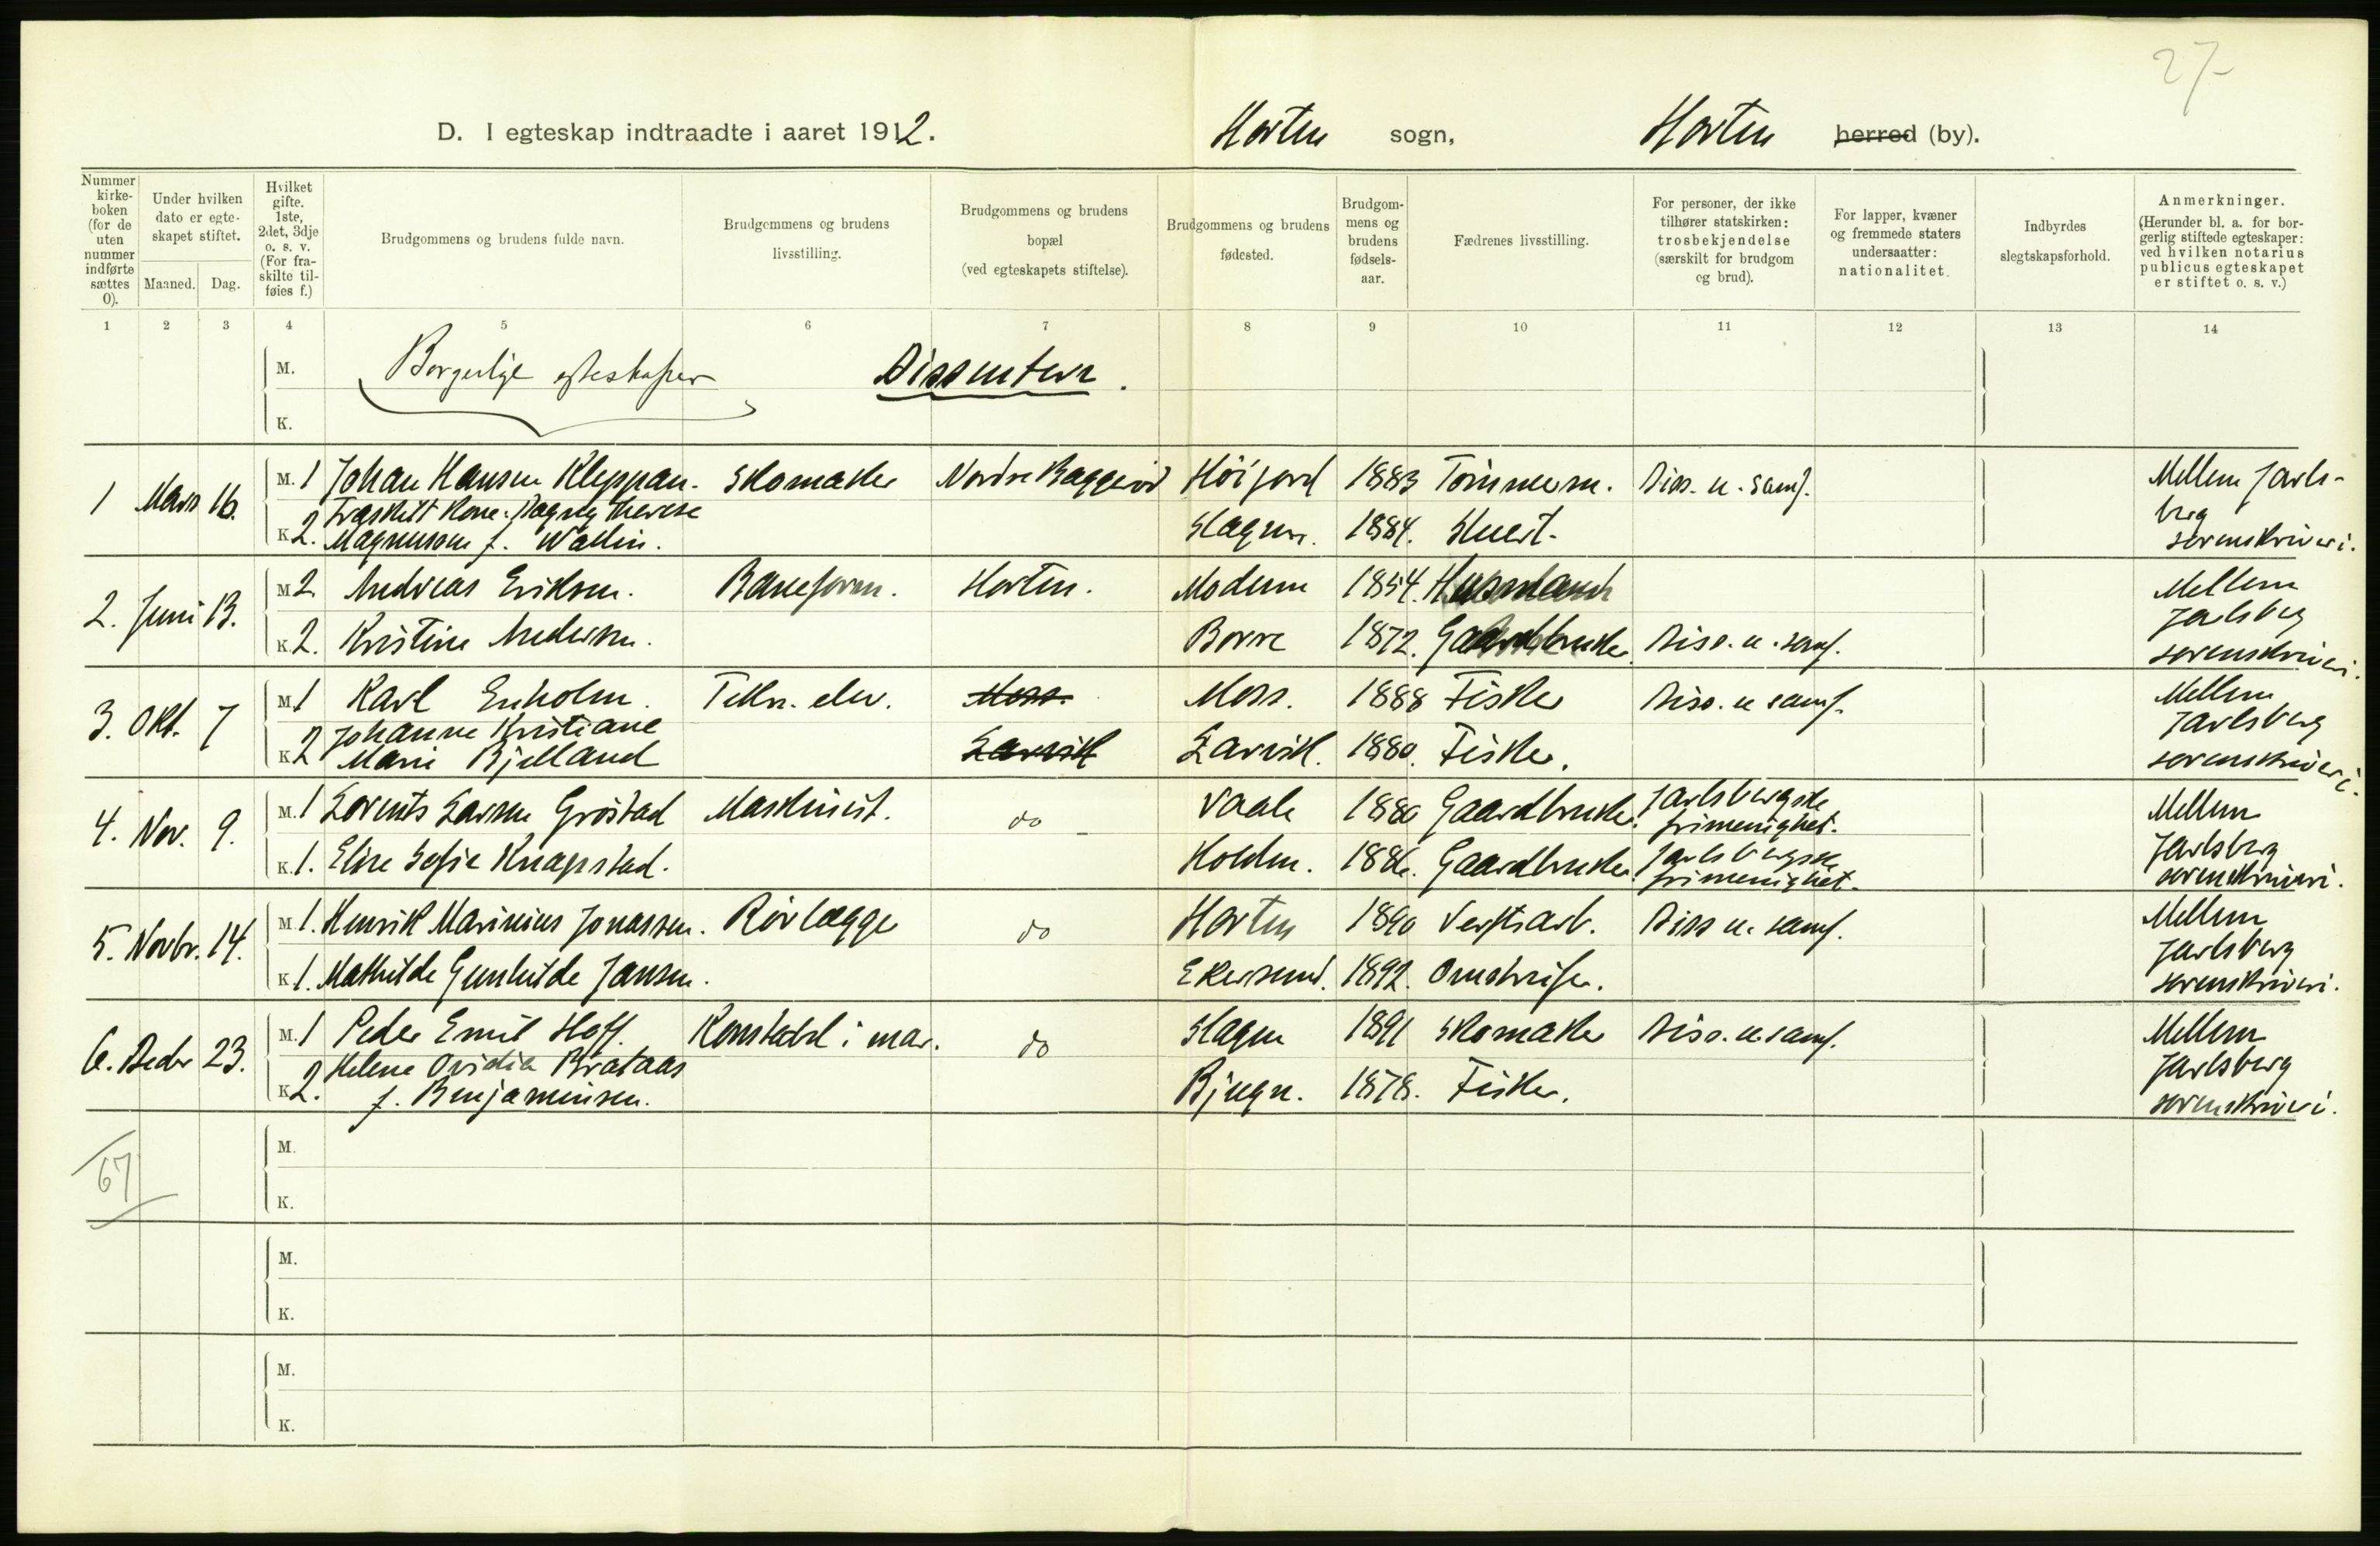 27-
D. I egteskap indtraadte i aaret 1912. Horten sogn, Horten herred (by).
Nummer kirke-boken (for de uten nummer indførte sættes 0).
Under hvilken dato er egte-skapet stiftet.
Maaned. Dag.
Hvilket gifte. 1ste, 2det, 3dje o. s. v. (For fra-skilte til-føies f.)
Brudgommens og brudens fulde navn.
Brudgommens og brudens livsstilling.
Brudgommens og brudens bopæl (ved egteskapets stiftelse).
Brudgommens og brudens fødested.
Brudgom-mens og brudens fødsels-aar.
Fædrenes livsstilling.
For personer, der ikke tilhører statskirken: trosbekjendelse (særskilt for brudgom og brud).
For lapper, kvæner og fremmede staters undersaatter: nationalitet.
Indbyrdes slegtskapsforhold.
Anmerkninger. (Herunder bl. a. for bor-gerlig stiftede egteskaper: ved hvilken notarius publicus egteskapet er stiftet o. s. v.)
1 2 3 4 5 6 7 8 9 10 11 12 13 14
M. Borgerlige egteskaper Dissentere.
K.
1 Mars 16. M. 1 Johan Hansen Kleppan. Skomaker Nordre Baggerød Høijord 1883 Tømmerm. Diss. u. samf. Mellem Jarls-berg sorenskriveri.
K 2. Fraskilt Kone: Dagny Therese Magnusson f. Wallin. Slagen. 1884. Stuert.
2. Juni 13. M 2. Andreas Eriksen. Baneform. Horten. Modum 1854. Husmand Mellem Jarlsberg sorenskriveri.
K. 2. Kristine Andersen. Borre 1872. Gaardbruker Diss. u. samf.
3. Okt. 7 M 1 Karl Enholm. Tekn. elev. Moss. Moss. 1888 Fisker Diss. u samf. Mellem Jarlsberg sorenskriveri.
K 2 Johanne Kristiane Marie Bjelland Larvik Larvik. 1880. Fisker.
4. Nov. 9. M. 1 Lorents Larsen Grøstad Maskinist. do Vaale 1880 Gaardbruker. Jarlsbergske frimenighet. Mellem Jarlsberg sorenskriveri.
K. 1. Elise Sofie Knapstad. Holdm. 1886. Gaardbruker. Jarlsbergske frimenighet.
5. Novbr. 14. M 1. Henrik Marinius Jonassen. Rørlægge do Horten 1890 Verftsarb. Diss u. samf. Mellem Jarlsberg sorenskriveri.
K 1. Mathilde Gunhilde Jansen. Ekersund. 1892.
6. Decbr 23. M. 1 Peder Emil Hoff. Konstabel i mar. do Slagen 1891 Skomaker Diss. u. samf. Mellem Jarlsberg sorenskriveri.
K 2. Helene Ovidia Brataas f. Benjaminsen. Bjugn. 1878. Fisker.
67
M.
K.
M.
K.
M.
K.